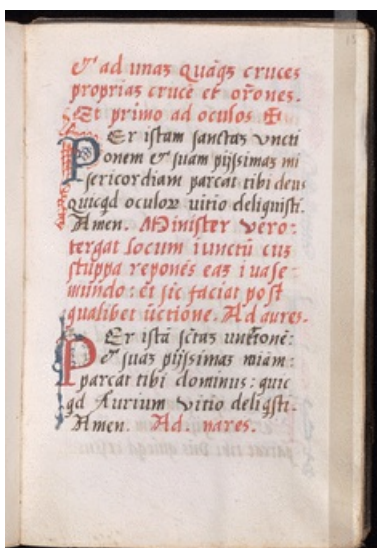 & ad unaʒ Quāqʒ cruces
proprias crucē et orōnes.
Et primo ad oculos ✠
PEr istam sanctaʒ uncti
onem & suam pijssimaʒ mi
sericordiam parcat tibi deus
quicqd oculoꝝ uitio deliquisti.
Amen. Minister vero:
tergat locum iunctū cuʒ
stuppa reponēs eaʒ i uase:
mundo: et sic faciat post
qualibet ūctione. Ad aures.
PEr istā sctaʒ unctionē:
& suaʒ pijssimaʒ miam:
parcat tibi dominus: quic
qd Aurium vitio deliqsti.
Amen. Ad. nares.